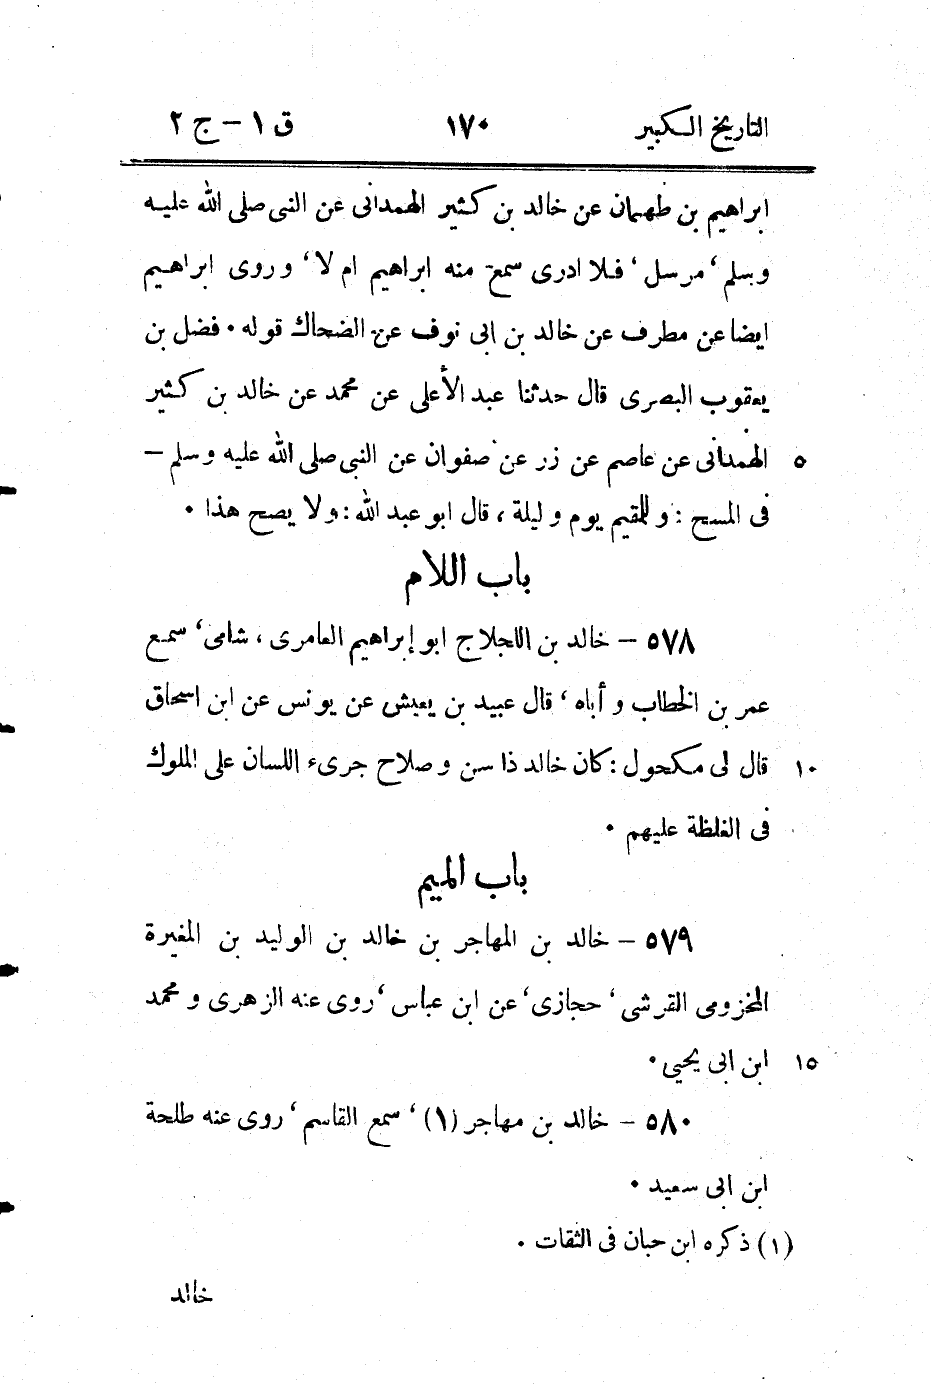 التاريخ الكبير ١٧٠ ق ١ – ج ٢
ابراهيم بن طهمان عن خالد بن كثير الهمدانى عن النبى صلى الله عليه
وسلم، مرسل، فلا ادرى سمع منه ابراهيم ام لا، وروى ابراهيم
ايضا عن مطرف عن خالد بن ابى نوف عن الضحاك قوله . فضل بن
يعقوب البصرى قال حدثنا عبد الأعلى عن محمد عن خالد بن كثير
٥ الهمدانى عن عاصم عن زر عن صفوان عن النبى صلى الله عليه وسلم –
فى المسح : و للمقيم يوم و ليلة ، قال ابو عبد الله : ولا يصح هذا .
باب اللام
٥٧٨ – خالد بن اللجلاج ابو إبراهيم العامرى ، شامى، سمع
عمر بن الخطاب و أباه، قال عبيد بن يعيش عن يونس عن ابن اسحاق
١٠ قال لى مكحول : كان خالد ذا سن و صلاح جرىء اللسان على الملوك
فى الغلظة عليهم .
باب الميم
٥٧٩ – خالد بن المهاجر بن خالد بن الوليد بن المغيرة
المخزومى القرشى، حجازى، عن ابن عباس، روى عنه الزهرى و محمد
١٥ ابن ابى يحيى .
٥٨٠ – خالد بن مهاجر (١)، سمع القاسم، روى عنه طلحة
ابن ابى سعيد .
(١) ذكره ابن حبان فى الثقات .
خالد